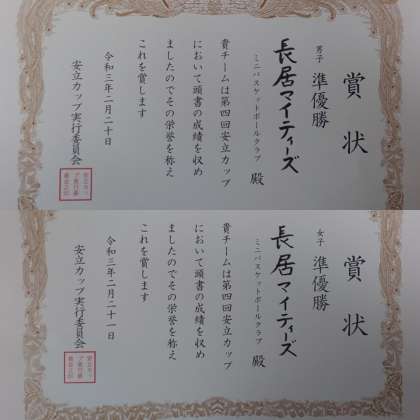 賞状
男子 準優勝
長居マイティーズ
ミニバスケットボールクラブ 殿
貴チームは第四回安立カップ
において頭書の成績を収め
ましたのでその栄誉を称え
これを賞します
令和三年二月二十日
安立カップ実行委員会
賞状
女子 準優勝
長居マイティーズ
ミニバスケットボールクラブ 殿
貴チームは第四回安立カップ
において頭書の成績を収め
ましたのでその栄誉を称え
これを賞します
令和三年二月二十一日
安立カップ実行委員会